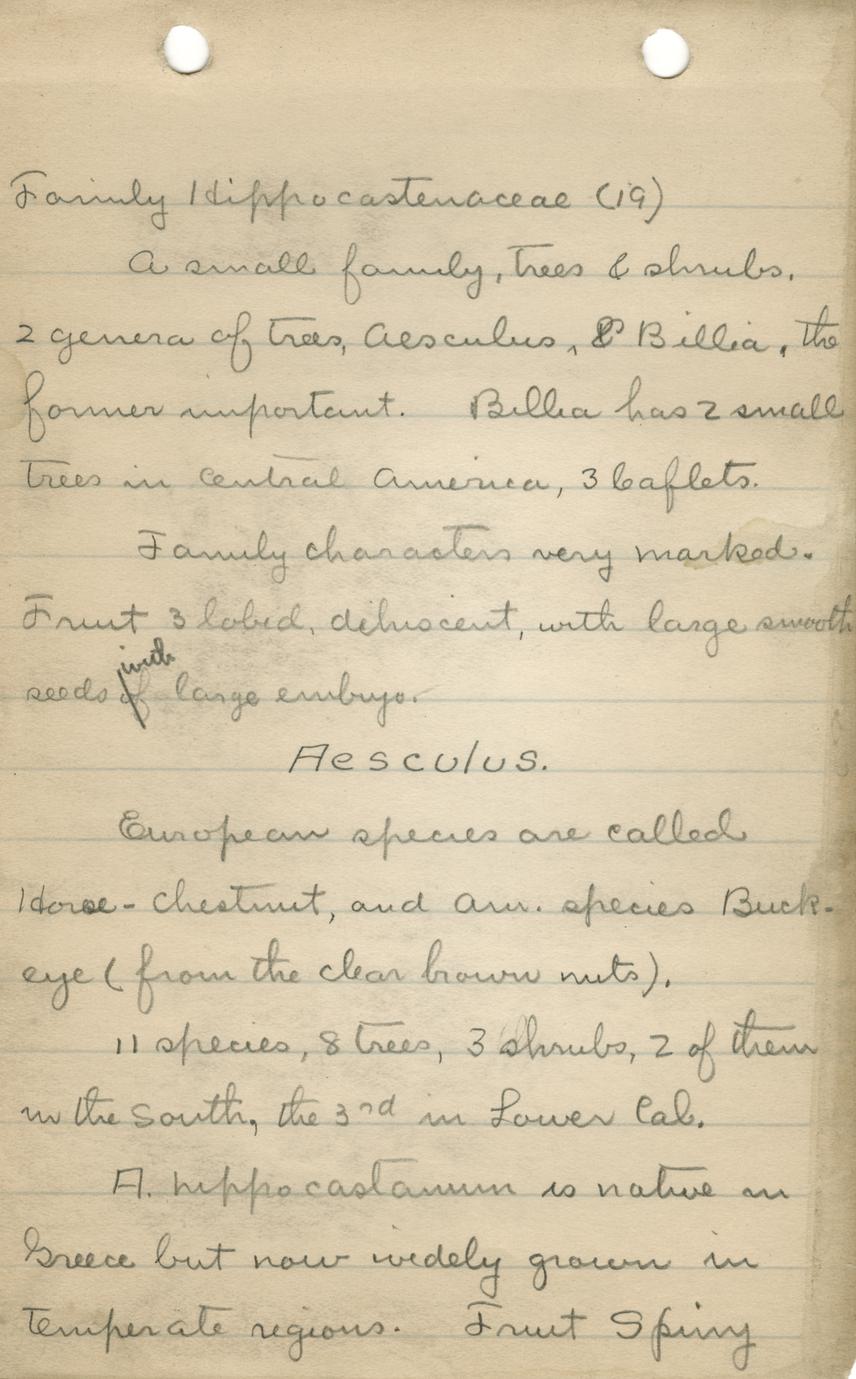 Family Hippocastenaceae (19)
A small family, trees & shrubs.
2 genera of trees, Aesculus, & Billia, the
former important. Billia has 2 small
trees in Central America, 3 leaflets.
Family characters very marked.
Fruit 3 lobed, dehiscent, with large smooth
with
seeds of large embryo.
Aesculus.
European species are called
Horse-Chestnut, and Am. species Buck-
eye (from the clear brown nuts).
11 species, 8 trees, 3 shrubs, 2 of them
in the South, the 3rd in Lower Cal.
A. hippocastanum is native in
Greece but now widely grown in
temperate regions. Fruit Spiny